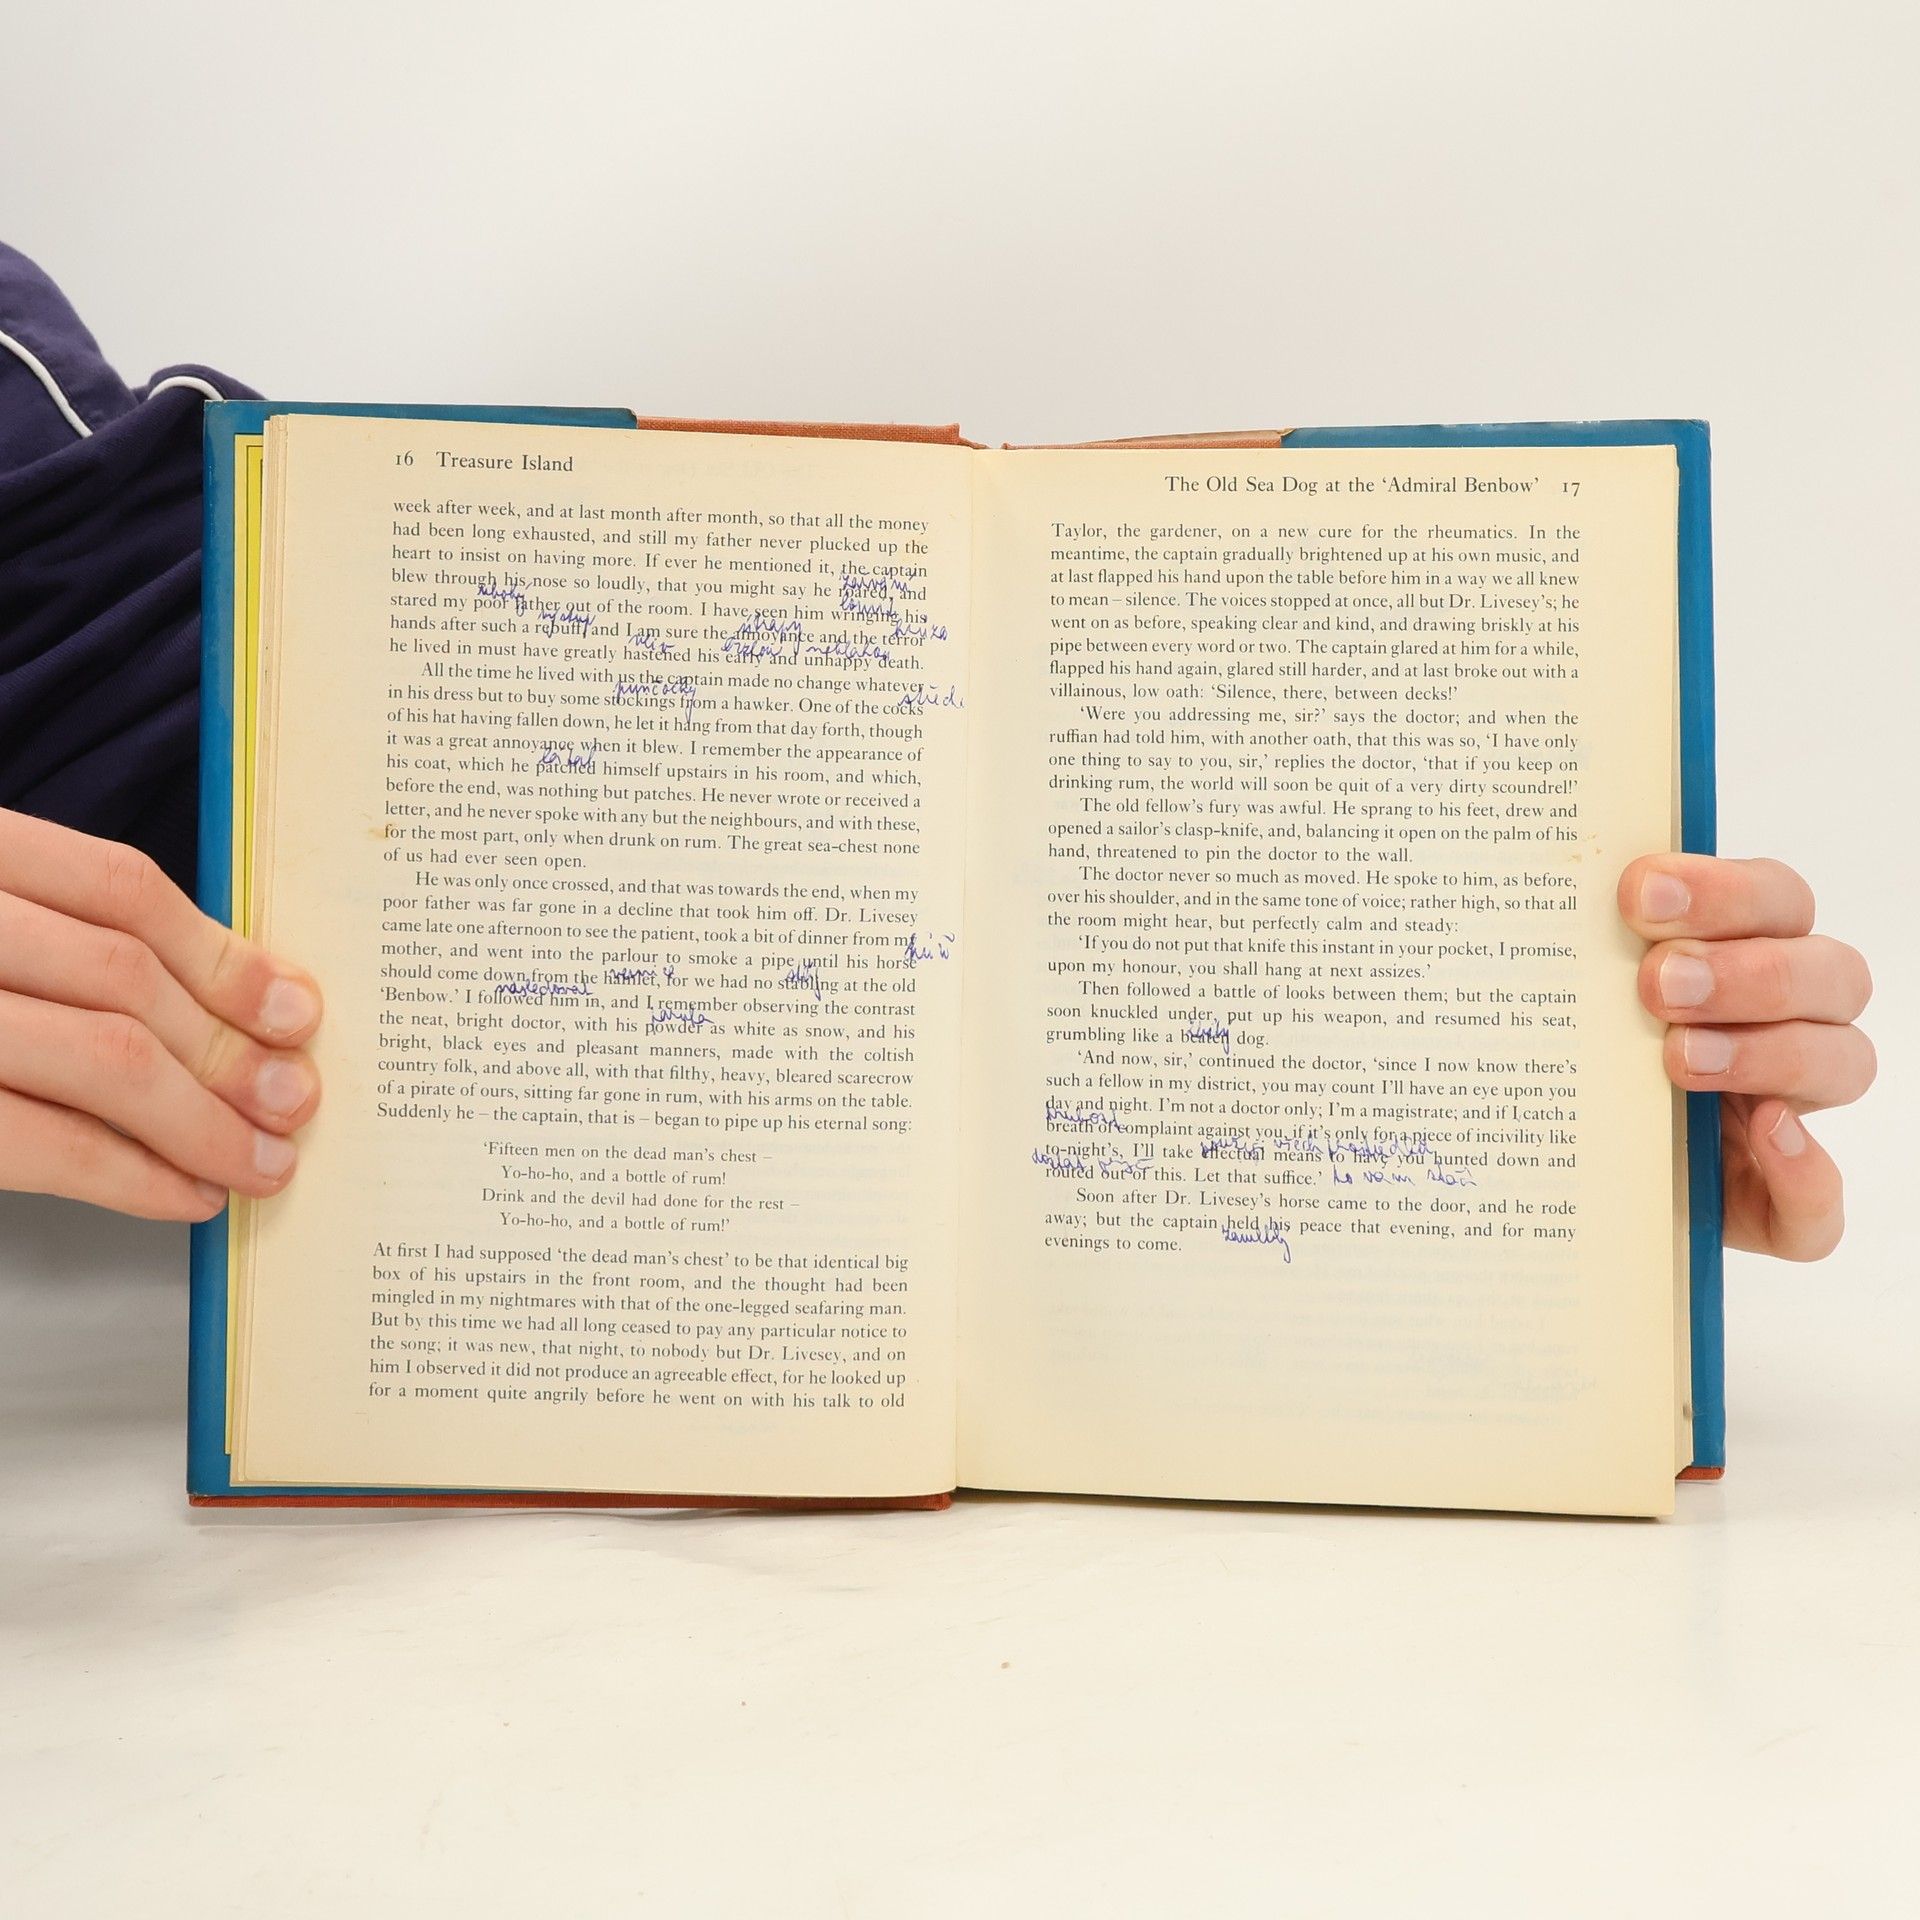 16 Treasure Island
week after week, and at last month after month, so that all the money
had been long exhausted, and still my father never plucked up the
heart to insist on having more. If ever he mentioned it, the captain
blew through his nose so loudly, that you might say he roared, and
ubohý
stared my poor father out of the room. I have seen him wringing his
hands after such a rebuff, and I am sure the annoyance and the terror
he lived in must have greatly hastened his early and unhappy death.
All the time he lived with us the captain made no change whatever
punčochy
in his dress but to buy some stockings from a hawker. One of the cocks
of his hat having fallen down, he let it hang from that day forth, though
it was a great annoyance when it blew. I remember the appearance of
his coat, which he patched himself upstairs in his room, and which,
before the end, was nothing but patches. He never wrote or received a
letter, and he never spoke with any but the neighbours, and with these,
for the most part, only when drunk on rum. The great sea-chest none
of us had ever seen open.
He was only once crossed, and that was towards the end, when my
poor father was far gone in a decline that took him off. Dr. Livesey
came late one afternoon to see the patient, took a bit of dinner from my
mother, and went into the parlour to smoke a pipe until his horse
should come down from the hamlet, for we had no stabling at the old
následoval
‘Benbow.’ I followed him in, and I remember observing the contrast
the neat, bright doctor, with his powder as white as snow, and his
bright, black eyes and pleasant manners, made with the coltish
country folk, and above all, with that filthy, heavy, bleared scarecrow
of a pirate of ours, sitting far gone in rum, with his arms on the table.
Suddenly he – the captain, that is – began to pipe up his eternal song:
‘Fifteen men on the dead man’s chest –
Yo-ho-ho, and a bottle of rum!
Drink and the devil had done for the rest –
Yo-ho-ho, and a bottle of rum!’
At first I had supposed ‘the dead man’s chest’ to be that identical big
box of his upstairs in the front room, and the thought had been
mingled in my nightmares with that of the one-legged seafaring man.
But by this time we had all long ceased to pay any particular notice to
the song; it was new, that night, to nobody but Dr. Livesey, and on
him I observed it did not produce an agreeable effect, for he looked up
for a moment quite angrily before he went on with his talk to old
The Old Sea Dog at the ‘Admiral Benbow’ 17
Taylor, the gardener, on a new cure for the rheumatics. In the
meantime, the captain gradually brightened up at his own music, and
at last flapped his hand upon the table before him in a way we all knew
to mean – silence. The voices stopped at once, all but Dr. Livesey’s; he
went on as before, speaking clear and kind, and drawing briskly at his
pipe between every word or two. The captain glared at him for a while,
flapped his hand again, glared still harder, and at last broke out with a
villainous, low oath: ‘Silence, there, between decks!’
‘Were you addressing me, sir?’ says the doctor; and when the
ruffian had told him, with another oath, that this was so, ‘I have only
one thing to say to you, sir,’ replies the doctor, ‘that if you keep on
drinking rum, the world will soon be quit of a very dirty scoundrel!’
The old fellow’s fury was awful. He sprang to his feet, drew and
opened a sailor’s clasp-knife, and, balancing it open on the palm of his
hand, threatened to pin the doctor to the wall.
The doctor never so much as moved. He spoke to him, as before,
over his shoulder, and in the same tone of voice; rather high, so that all
the room might hear, but perfectly calm and steady:
‘If you do not put that knife this instant in your pocket, I promise,
upon my honour, you shall hang at next assizes.’
Then followed a battle of looks between them; but the captain
soon knuckled under, put up his weapon, and resumed his seat,
grumbling like a beaten dog.
‘And now, sir,’ continued the doctor, ‘since I now know there’s
such a fellow in my district, you may count I’ll have an eye upon you
day and night. I’m not a doctor only; I’m a magistrate; and if I catch a
breath of complaint against you, if it’s only for a piece of incivility like
to-night’s, I’ll take effectual means to have you hunted down and
routed out of this. Let that suffice.’ to vám stačí
Soon after Dr. Livesey’s horse came to the door, and he rode
away; but the captain held his peace that evening, and for many
evenings to come.